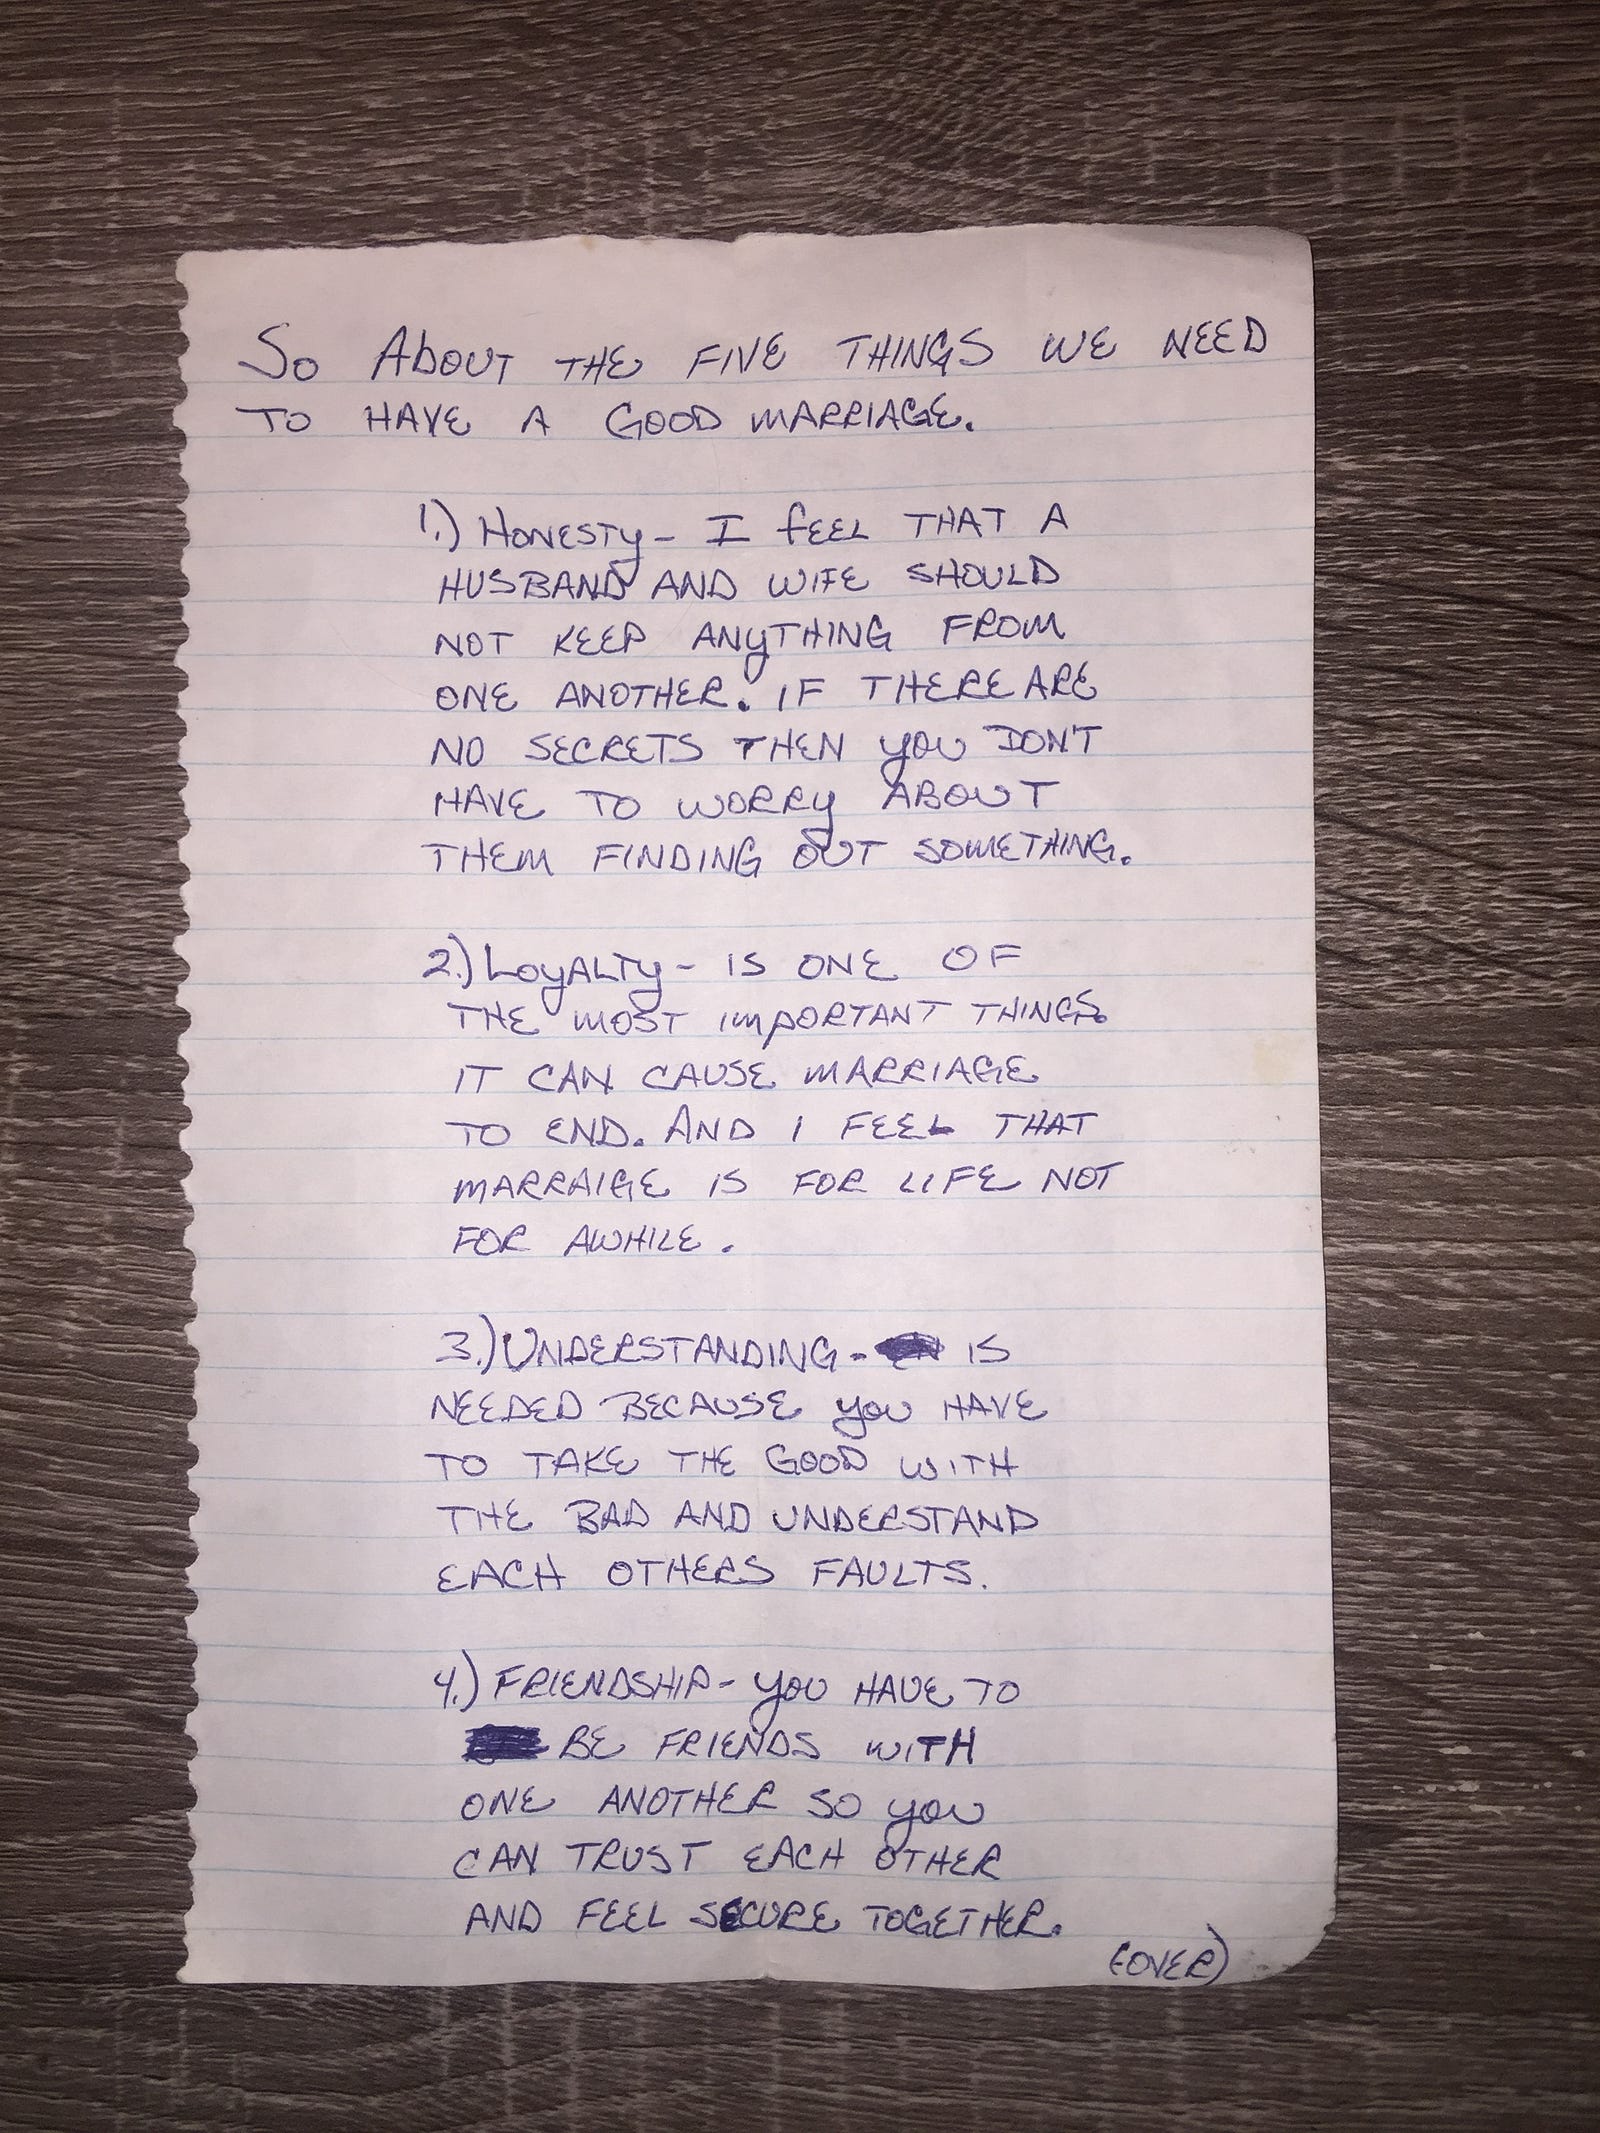 So About THE FIVE THINGS WE NEED
TO HAVE A GOOD MARRIAGE.
1.) HONESTY - I feel THAT A
HUSBAND AND WIFE SHOULD
NOT KEEP ANYTHING FROM
ONE ANOTHER. IF THERE ARE
NO SECRETS THEN you DON'T
HAVE TO WORRY ABOUT
THEM FINDING OUT SOMETHING.
2.) LOYALTY - IS ONE OF
THE MOST IMPORTANT THINGS.
IT CAN CAUSE MARRIAGE
TO END. AND I FEEL THAT
MARRAIGE IS FOR LIFE NOT
FOR AWHILE.
3.) UNDERSTANDING - IS
NEEDED BECAUSE you HAVE
TO TAKE THE GOOD WITH
THE BAD AND UNDERSTAND
EACH OTHERS FAULTS.
4.) FRIENDSHIP - you HAVE TO
BE FRIENDS WITH
ONE ANOTHER SO you
CAN TRUST EACH OTHER
AND FEEL SECURE TOGETHER.
(OVER)